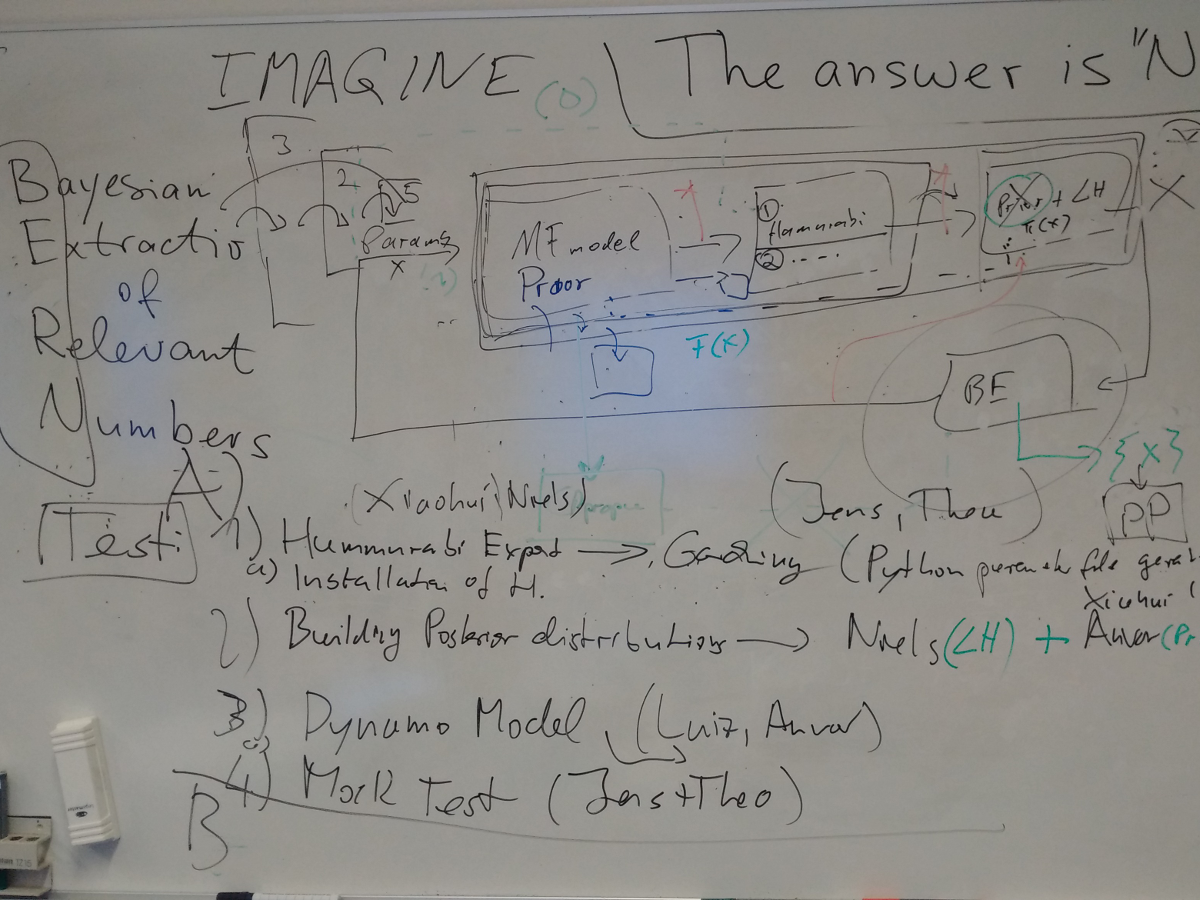 IMAGINE
The answer is "N
(0)
Bayesian
Extractio
of
Relevant
Numbers
3
2
5
Params
x
MF model
Prior
①
Hammurabi
② ----
Prior + LH
π(x)
X
F(x)
BE
{x}
PP
A)
Test:
(Xiaohui\Niels)
(Jens, Theo)
1) Hummurabi Expert → Gardening (Python
file
a) Installation of H.
Xiaohui (
2) Building Posterior distributions → Niels (LH) + Anvar (Pr
3) Dynamo Model (Luiz, Anvar)
4) Mock Test (Jens + Theo)
B